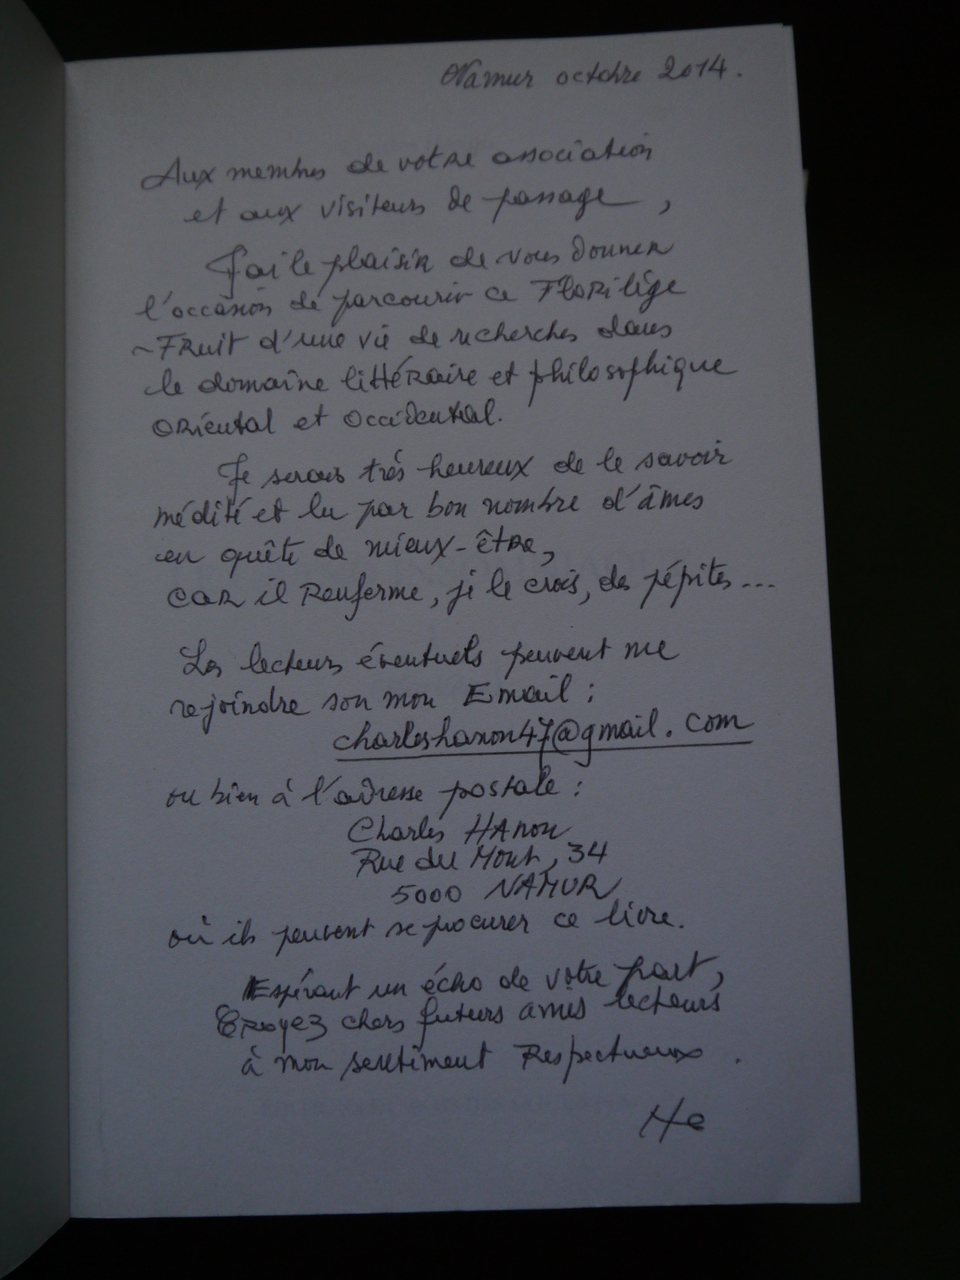 Namur octobre 2014.
Aux membres de votre association
et aux visiteurs de passage,
J'ai le plaisir de vous donner
l'occasion de parcourir ce Florilège
~ Fruit d'une vie de recherches dans
le domaine littéraire et philosophique
oriental et occidental.
Je serais très heureux de le savoir
médité et lu par bon nombre d'âmes
en quête de mieux-être,
car il renferme, je le crois, des pépites...
Les lecteurs éventuels peuvent me
rejoindre son mon Email :
charleshanon47@gmail.com
ou bien à l'adresse postale :
Charles HANON
Rue du Mont, 34
5000 NAMUR
où ils peuvent se procurer ce livre.
Espérant un écho de votre part,
Croyez chers futurs amis lecteurs
à mon sentiment Respectueux.